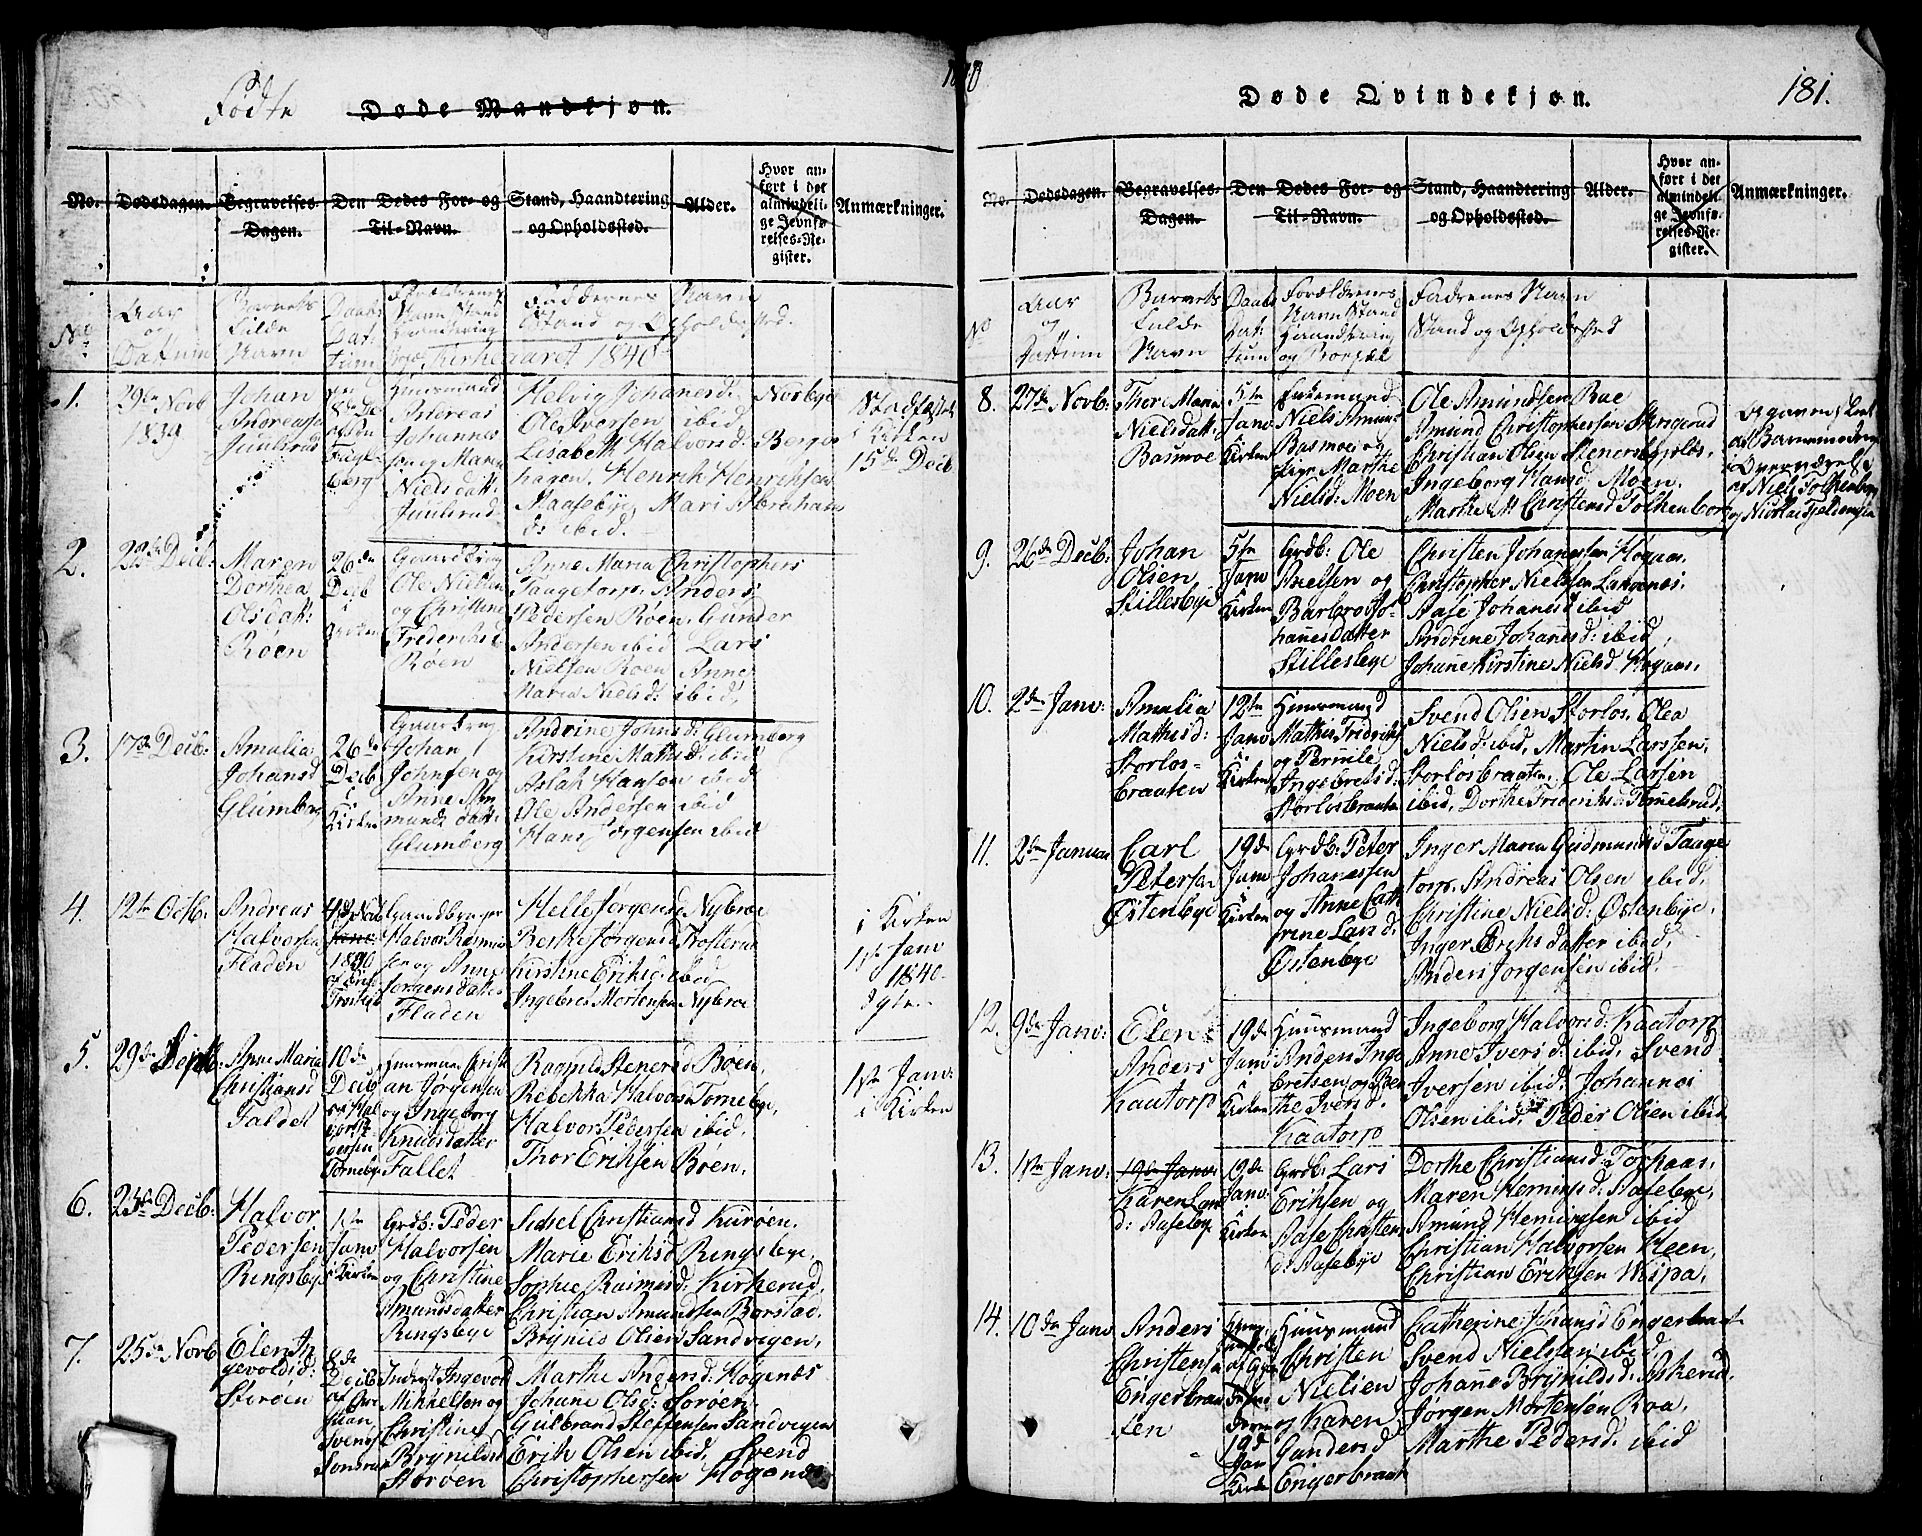 Fødte Døde Mandkjøn.
No. Dødsdagen. Begravelses-Dagen. Den Dødes For- og Til-Navn. Stand, Haandtering og Opholdssted. Alder. Hvor anført i det almindelige Jevnførelses-Register. Anmærkninger.
No Aar og Datum Barnets fulde Navn Daabs Dattum Forældrenes Navn Stand Haandtering Faddernes Navn Stand og Opholdssted.
Kirkeaaret 1840
1. 29de Novb 1839
Johan Andreasen Juulsrud
Huusmand Andreas Johannessen og Maren Nielsdatt: Juulsrud
Helvig Johanesd: Norbye
Ole Iversen ibid
Lisabeth Halvorsd: Berger
hagen, Henrik Henriksen
Aasebye, Mari Abraham
d: ibid.
Stadfæstet i Kirken 15de Decb
2. 23de Decb:
Maren Dorthea Olsdatt: Røen
26de Decb i Kirken
Gaardbrug Ole Nielsen og Christine Frederiksd Røen
Anne Maria Christophers
Taagetorp. Anders
Pedersen Røen, Gunder
Andersen ibid Lars
Nielsen Roen Anne
Maria Nielsd: ibid,
3. 17de Decb:
Amalia Johansd Glumberg
26de Decb i Kirken
Gaardbrug Johan Johnsen og Anne Amundsdatt: Glumberg
Andrine Johnsd: Glumberg
Kirstine Mathisd: ibid
Aslak Hansen ibid
Ole Andersen ibid
Hans Jørgensen ibid
4. 12te Octb:
Andreas Halvorsen Fladen
Gaardbruger Halvor Rasmussen og Anne Jørgensdatter Fladen
Helle Jørgensd Nybroe
Berthe Jørgensd Trosterud
Kirstine Eriksd: ibid
Ingebret Mortensen Nybroe
i Kirken 1ste Janv 1840
5. 29de Septb:
Anne Maria Christiansd Faldet
10de Decb
Huusmand Christian Jørgensen og Ingeborg Knudsdatter Fallet
Ragnild Stenersd Boen,
Rebekka Halvorsd Tornebye,
Halvor Pedersen ibid.
Thor Eriksen Boen,
1ste Janv: i Kirken
6. 23de Decb:
Halvor Pedersen Ringsbye
1ste Janv i Kirken
Grdb: Peder Halvorsen og Christine Amundsdatter Ringsbye
Sidsel Christiansd Kurøen.
Marie Eriksd Ringsbye,
Sophie Rasmusd: Kirkerud,
Christian Amundsen Borstad,
Brynild Olsen Sandvigen,
7. 25de Novb
Elen Ingevoldsd: Størøen
8de Decb
Inderst Ingevold Mikkelsen og Christine Brynildsd Storøen
Marthe Andersd: Høgenæs
Johane Olsd: Sorøen
Gulbrand Steffensen Sandvigen
Erik Olsen ibid, Svend
Christophersen Høgenæs
Døde Qvindekjøn. 181.
No. Dødsdagen. Begravelses-Dagen. Den Dødes For- og Til-Navn. Stand, Haandtering og Opholdssted. Alder. Hvor anført i det almindelige Jevnførelses-Register. Anmærkninger.
No Aar og Dattum Barnets fulde Navn Daabs Dattum Forældrenes Navn Stand Haandtering og Bopæl Fadrenes Navn Stand og Opholdssted
8. 27de Novb:
Thore Maria Nielsdatt: Basmoe
5te Janv Kirken
Niels Amunds Basmoe og Pige Marthe Nielsd: Moen
Ole Amundsen Boe
Amund Christophersen Skrogerud
Christian Olsen Stenersbyslos,
Ingeborg Hansd: Moen,
Marthe M Christensd Folkenborg
9. 26de Decb:
Johan Olsen Stillesbye
5te Janv Kirken
Grdb: Ole Axelsen og Barbro Johanesdatter Stillesbye
Christen Johanesen Hogaas.
Christopher Nielsen Langenæs.
Aase Johanesd ibid
Andrine Johanesd: ibid
Johane Kirstine Nielsd Hogaas.
10. 2den Janv:
Amalia Mathisd: Storlosbraaten
12te Janv i Kirken
Huusmand Mathis Fridriks og Pernile Ingebretsd: Storlosbraaten
Svend Olsen Storlos, Olea
Nielsd: ibid, Martin Larssen,
Storlosbraaten, Ole Larsen
ibid, Dorthe Frederiksd Tømelsrud,
11. 2den Januar
Carl Petersen Østenbye
19de Janv Kirken
Grdb: Peter Johanessen og Anne Cathrine Larsd, Østenbye
Inger Maria Gudmundsd Taage
torp. Andreas Olsen ibid,
Christine Nielsd: Østenbye,
Inger Eriksdatter ibid,
Anders Jørgensen ibid.
12. 9de Janv:
Elen Anders Kaatorp
19de Janv i Kirken
Huusmand Anders Ingebretsen og Berthe Iversd. Kaatorp
Ingeborg Halvorsd: Kaatorp
Anne Iversd: ibid, Svend
Iversen ibid: Johannes
Olsen ibid, Peder Olsen ibid
13. 1ste Janv:
19de Janv: Karen Larsd: Aasebye
19de Janv: Kirken
Grdb: Lars Eriksen og Aase Christensd: Aasebye
Dorthe Christiansd: Torhaas,
Maren Hemingsd: Aasebye,
Amund Hemingsen ibid
Christian Halvorsen Heen,
Christian Eriksen Wispa,
14. 10de Janv
Anders Christensen Engerbraaten
19d Jan Kirke
Huusmand Christen Nielsen og Karen Gundersd Engerbraat
Catherine Johansd Engerbraat
Svend Nielsen ibid
Johane Brynildsd: Askerud,
Jørgen Mortensen Roa,
Marthe Pedersd: ibid